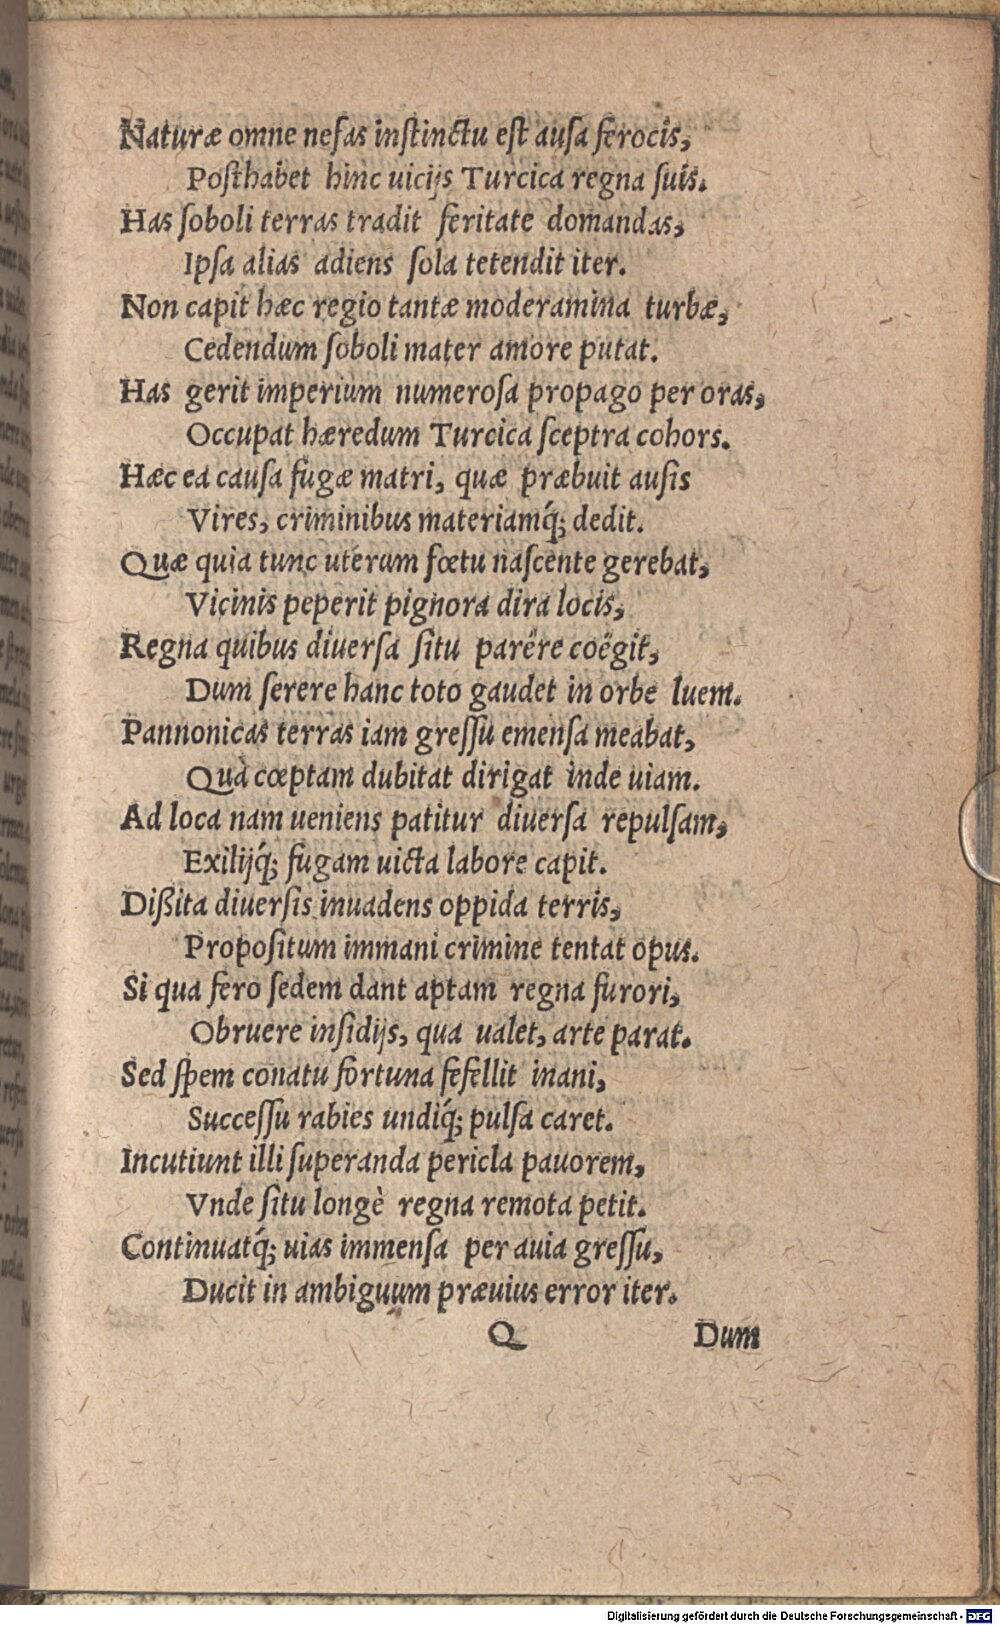 Naturæ omne nefas instinctu est ausa ferocis,
Posthabet hinc uicijs Turcica regna suis.
Has soboli terras tradit feritate domandas,
Ipsa alias adiens sola tetendit iter.
Non capit hæc regio tantæ moderamina turbæ,
Cedendum soboli mater amore putat.
Has gerit imperium numerosa propago per oras,
Occupat hæredum Turcica sceptra cohors.
Hæc ea causa fugæ matri, quæ præbuit ausis
Vires, criminibus materiamq́; dedit.
Quæ quia tunc uterum fœtu nascente gerebat,
Vicinis peperit pignora dira locis,
Regna quibus diuersa situ parêre coëgit,
Dum serere hanc toto gaudet in orbe luem.
Pannonicas terras iam gressu emensa meabat,
Quà cœptam dubitat dirigat inde uiam.
Ad loca nam ueniens patitur diuersa repulsam,
Exilijq́; fugam uicta labore capit.
Dißita diuersis inuadens oppida terris,
Propositum immani crimine tentat opus.
Si qua fero sedem dant aptam regna furori,
Obruere insidijs, qua ualet, arte parat.
Sed spem conatu fortuna fefellit inani,
Successu rabies undiq́; pulsa caret.
Incutiunt illi superanda pericla pauorem,
Vnde situ longè regna remota petit.
Continuatq́; uias immensa per auia gressu,
Ducit in ambiguum præuius error iter.
Q Dum
Digitalisierung gefördert durch die Deutsche Forschungsgemeinschaft - DFG